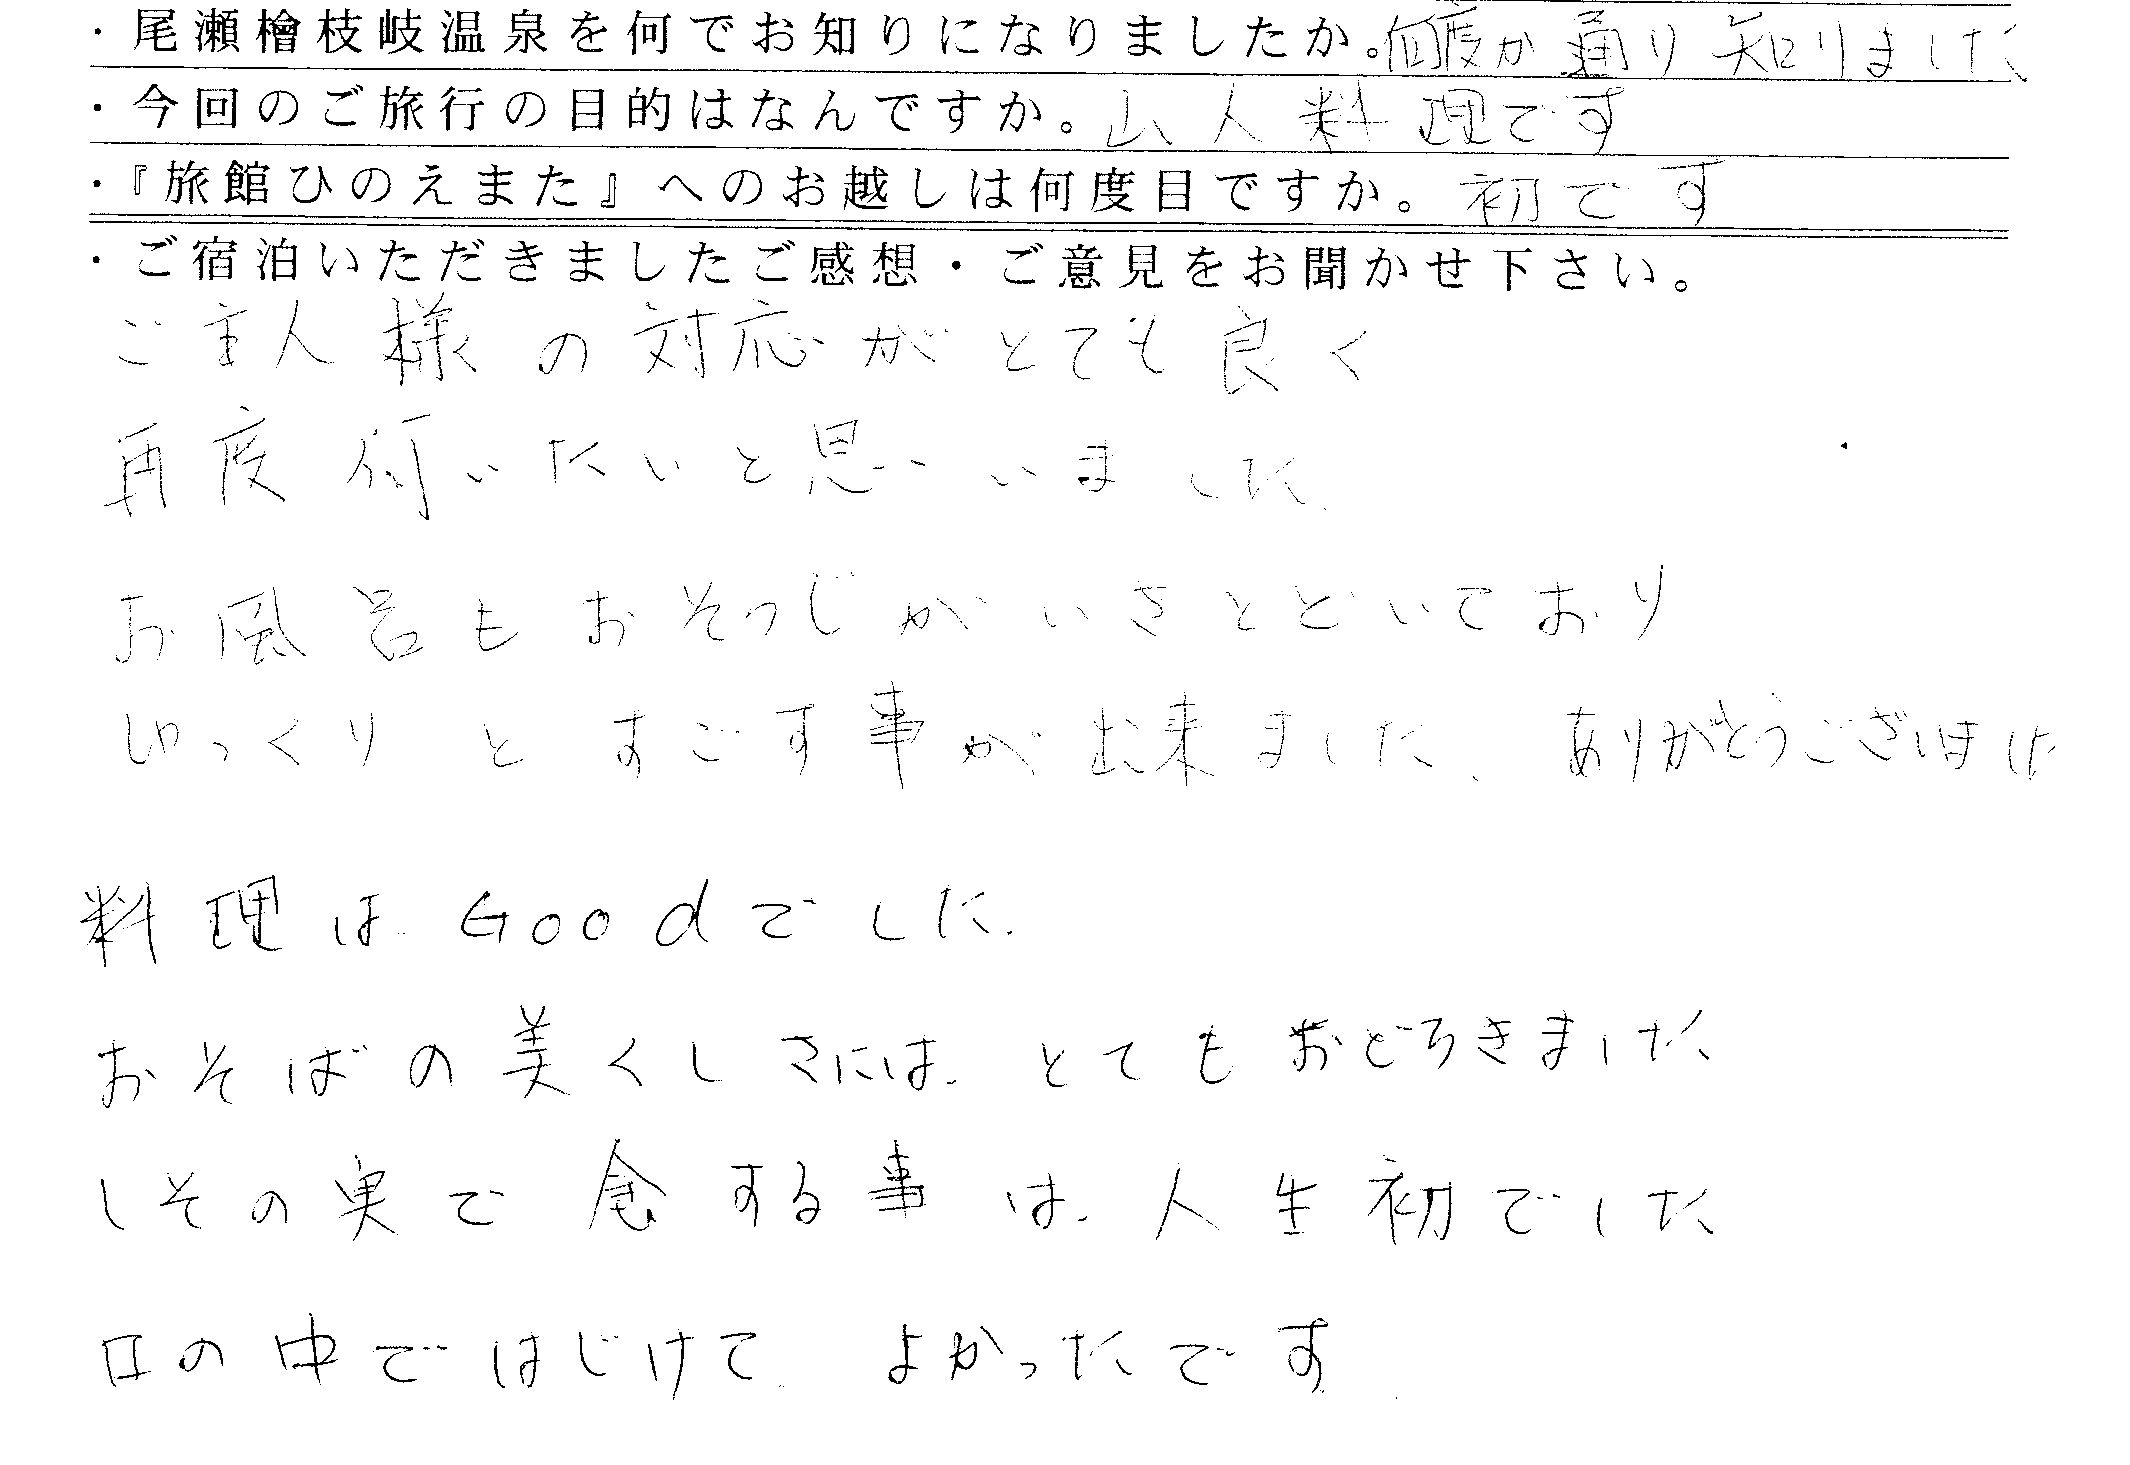 ・尾瀬檜枝岐温泉を何でお知りになりましたか。何度か通り知りました
・今回のご旅行の目的はなんですか。山人料理です
・『旅館ひのえまた』へのお越しは何度目ですか。初です
・ご宿泊いただきましたご感想・ご意見をお聞かせ下さい。
ご主人様の対応がとても良く
再度伺いたいと思いました
お風呂もおそうじがいきとどいており
ゆっくりとすごす事が出来ました。ありがとうございました
料理はGoodでした。
おそばの美くしさには、とてもおどろきました
しその実で食する事は、人生初でした
口の中ではじけて、よかったです。